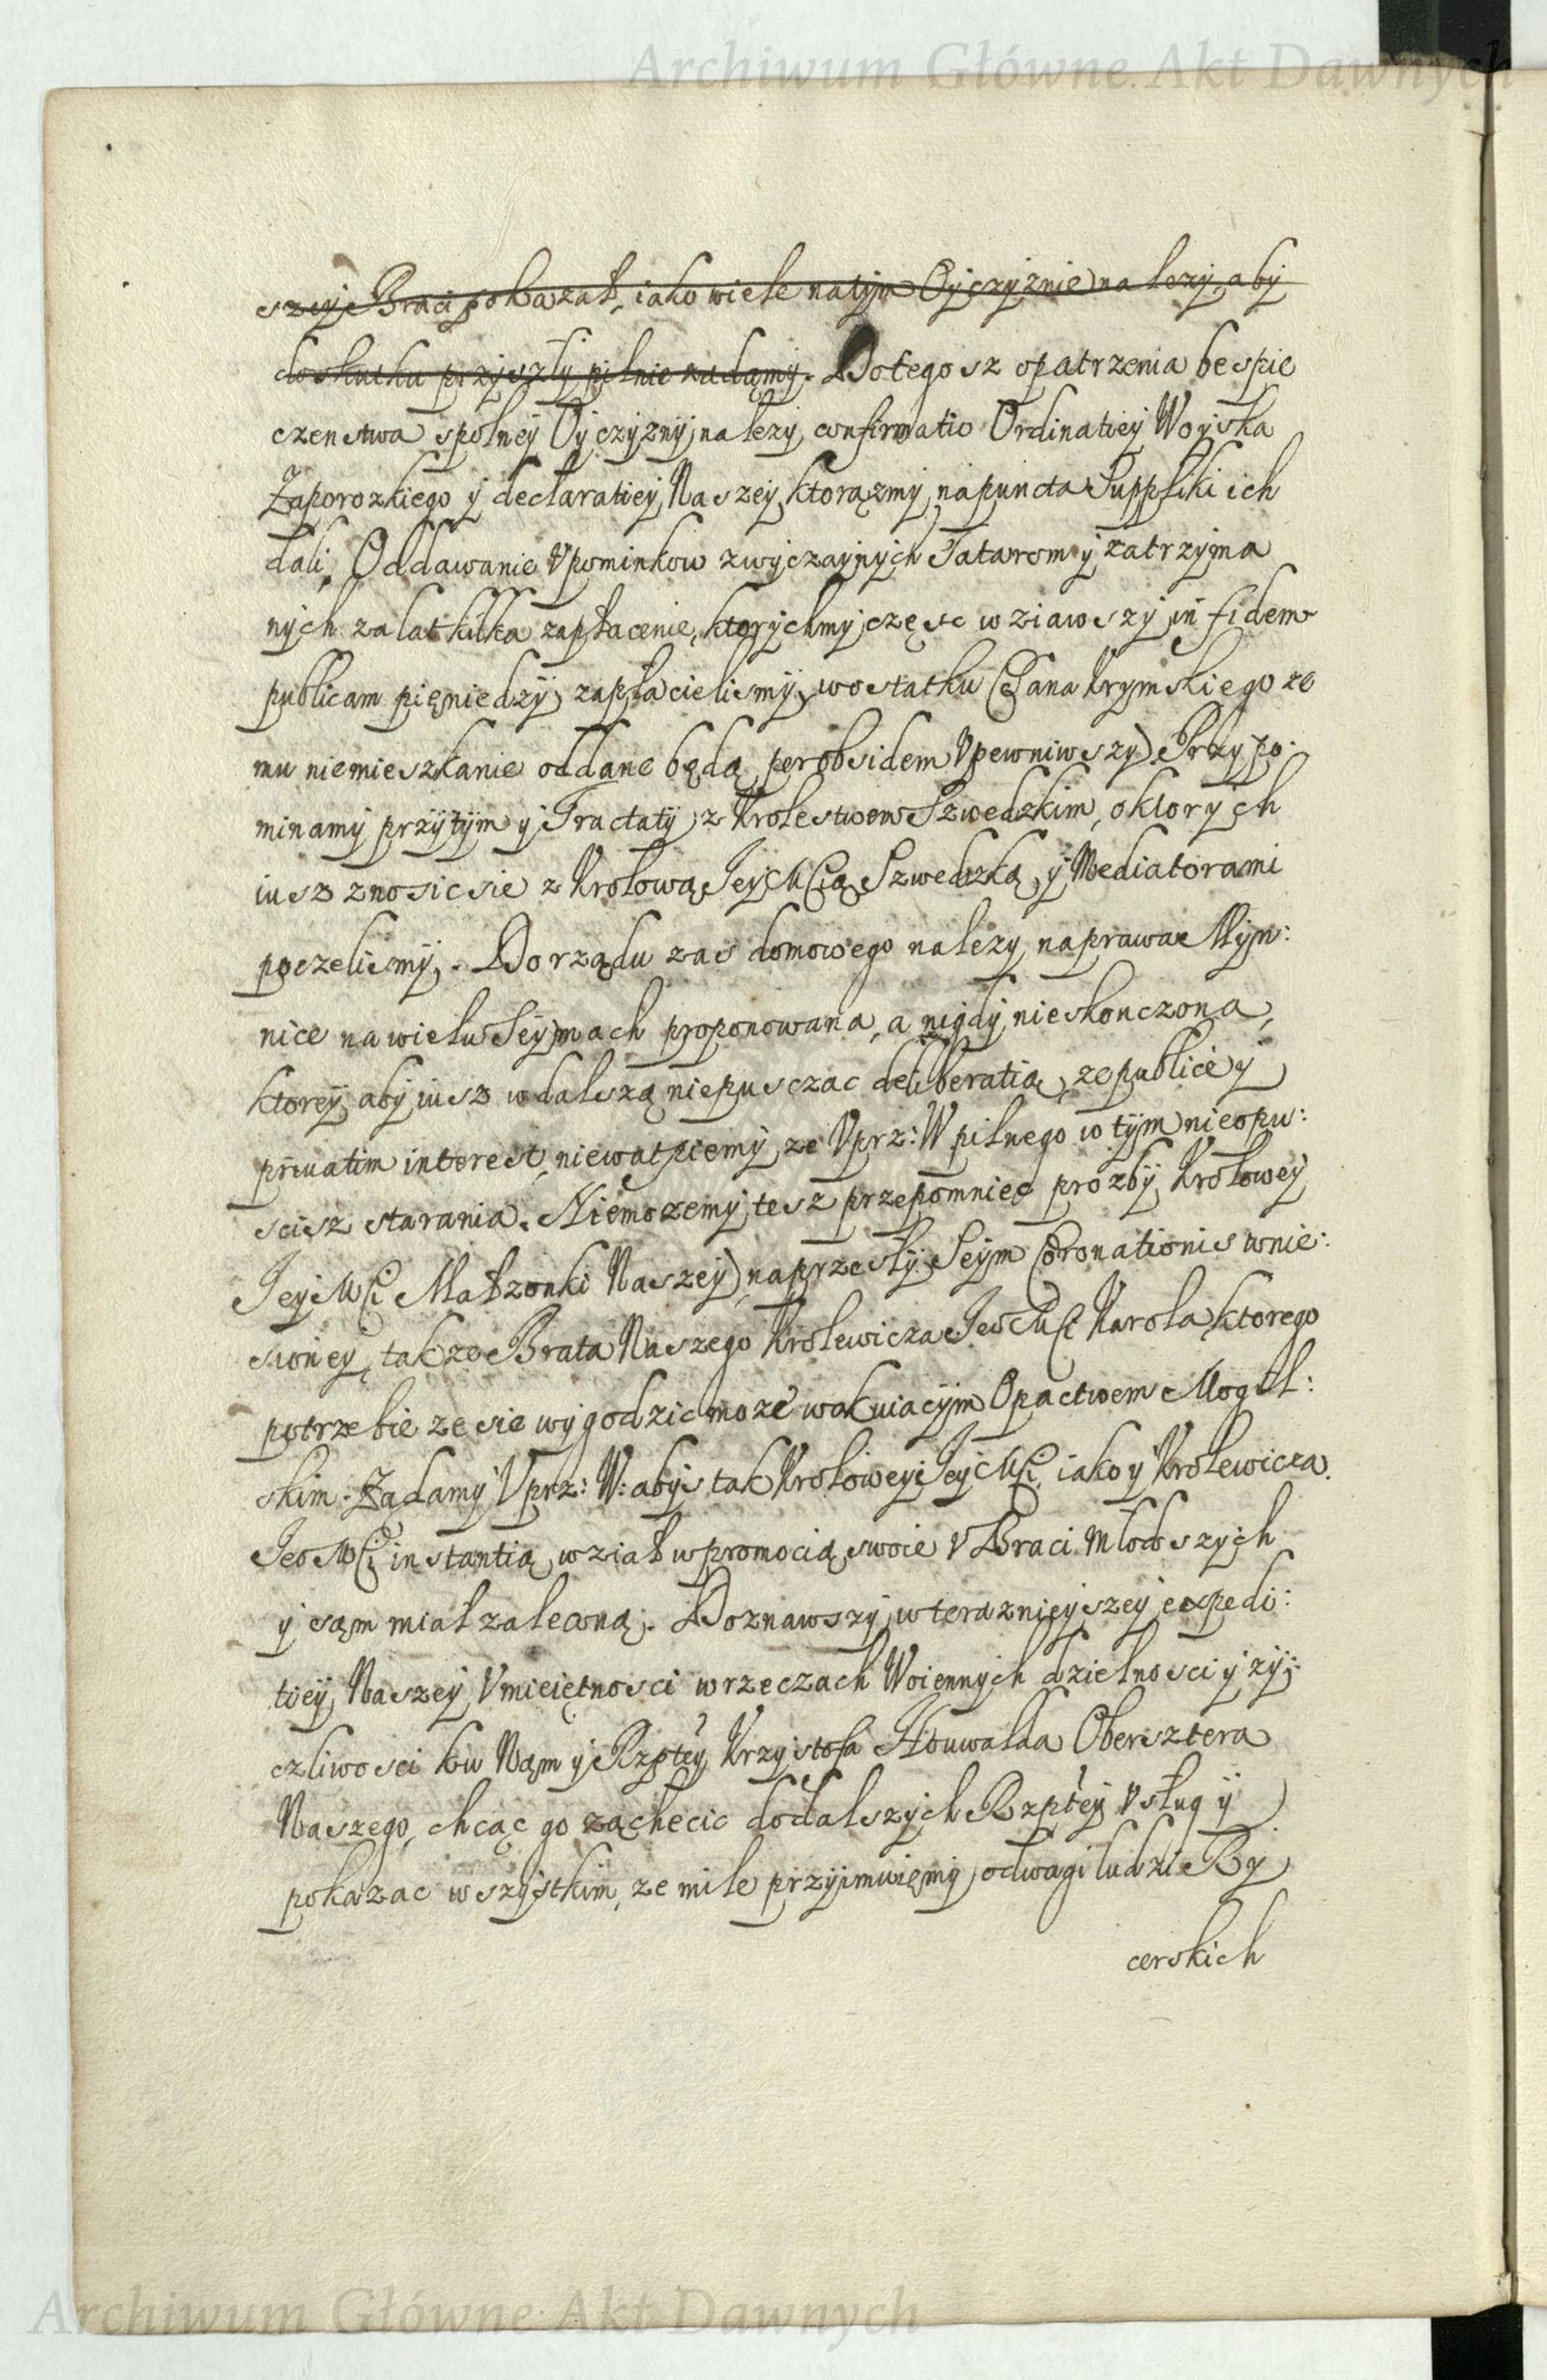 Archiwum Główne Akt Dawnych
szey Braci pokazał, iako wiele natym Oyczyznie nalezy, aby
do skutku przyszły pilnie ządamy. Do tegosz opatrzenia bespie
czenstwa spolney Oyczyzny nalezy confirmatio Ordinatiey Woyska
Zaporozkiego y declaratiey Naszey, ktorązmy na puncta Suppliki ich
dali, Oddawanie Vpominkow zwyczaynych Tatarom y zatrzyma
nych za lat kilka zapłacenie, ktorychmy częsc wziawszy in fidem
publicam pięniedzy zapłacielismy, w ostatku Chana Krymskiego ze
mu niemieszkanie oddane będą per obsidem Vpewniwszy. Przypo:
minamy przytym y Tractaty z Krolestwem Szwedzkim, o ktorych
iusz znosic sie z Krolową Jey Mcią Szwedzką, y Mediatorami
poczelismy. Do rządu zas domowego nalezy naprawa Myn:
nice na wielu Seymach proponowana, a nigdy nieskonczona,
ktorey aby iusz w dalszą niepusczac deliberatią, ze publice y
priuatim interest, niewątpiemy ze Vprz: W pilnego w tym nieopu:
scisz starania. Niemozemy tesz przepomniec prozby Krolowey
Jey Mci Małzonki Naszey na przeszły Seym Coronationis wnie:
sioney, takze Brata Naszego Krolewicza Jeo Mci Karola, ktorego
potrzebie ze sie wygodzic moze wakuiacym Opactwem Mogil:
skim. Ządamy Vprz: W: abys tak Krolowey Jey Mci, iako y Krolewicza
Jeo Mci instantią wziął w promocią swoie v Braci młodszych
y sąm miał zaleconą. Doznawszy w terazznieyszey expedi:
tiey Naszey Vmieiętnosci w rzeczach Woiennych dzielnosci y zy:
czliwosci ku Nąm y Rzptey Krzysztofa Houwalda Obersztera
Naszego, chcąc go zachecic do dalszych Rzptey Vsług y
pokazac wszystkim, ze mile przyimuięmy odwagi ludzi Ry
cerskich
Archiwum Główne Akt Dawnych